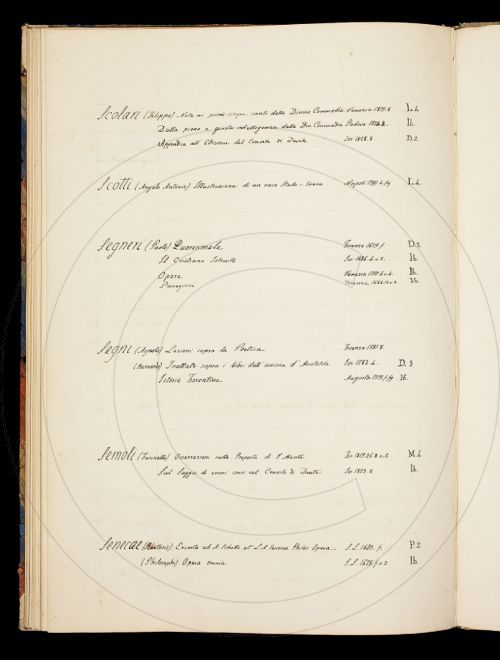 Scolari (Filippo) Note ai primi cinque canti della Divina Commedia Venezia 1819.8 L.4.
Della piena e giusta intelligenza della Div. Commedia Padova 1823.8. Ib.
Appendice all' Edizione del Convito di Dante Ivi 1828.8. D.2
Scotti (Angelo Antonio) Illustrazione di un vaso Italo-Greco Napoli 1811.4. L.4.
Segneri (Paolo) Quaresimale Firenze 1679.f. D.3
Il Cristiano Istruito Ivi 1686.4. Ib
Opere Venezia Ib.
Panegirici Ib.
Segni (Agnolo) Lezioni sopra la Poetica Firenze 1581.8.
(Bernardo) Trattato sopra i libri dell' anima d' Aristotile Ivi 1583.4. D.3
Istorie Fiorentine Augusta 1723.f. Ib.
(Iannotto) Osservazioni sulla Proposta di V. Monti M.4
Sul Saggio di errori corsi nel Convito di Dante Ivi 1823.8 Ib.
Senecae Opera P.2
(Philosophi) Opera omnia Ib.